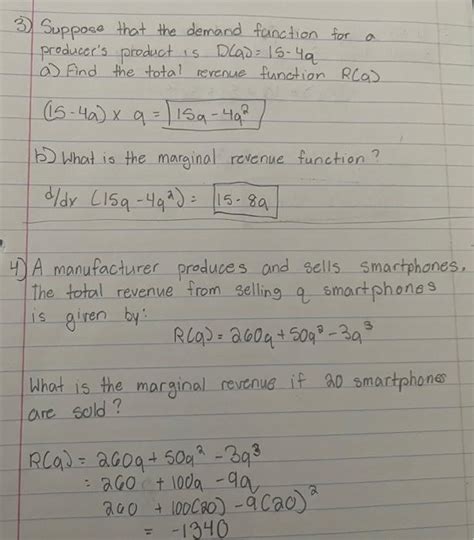 3) Suppose that the demand function for a
producer's product is D(q) = 15-4q
a) Find the total revenue function R(q)
(15-4q) x q = 15q-4q²
b) What is the marginal revenue function?
d/dx (15q-4q²) = 15-8q
4) A manufacturer produces and sells smartphones.
The total revenue from selling q smartphones
is given by:
R(q) = 260q + 50q² - 3q³
What is the marginal revenue if 20 smartphones
are sold?
R(q) = 260q + 50q² - 3q³
= 260 + 100q - 9q
260 + 100(20) - 9(20)²
= -1340